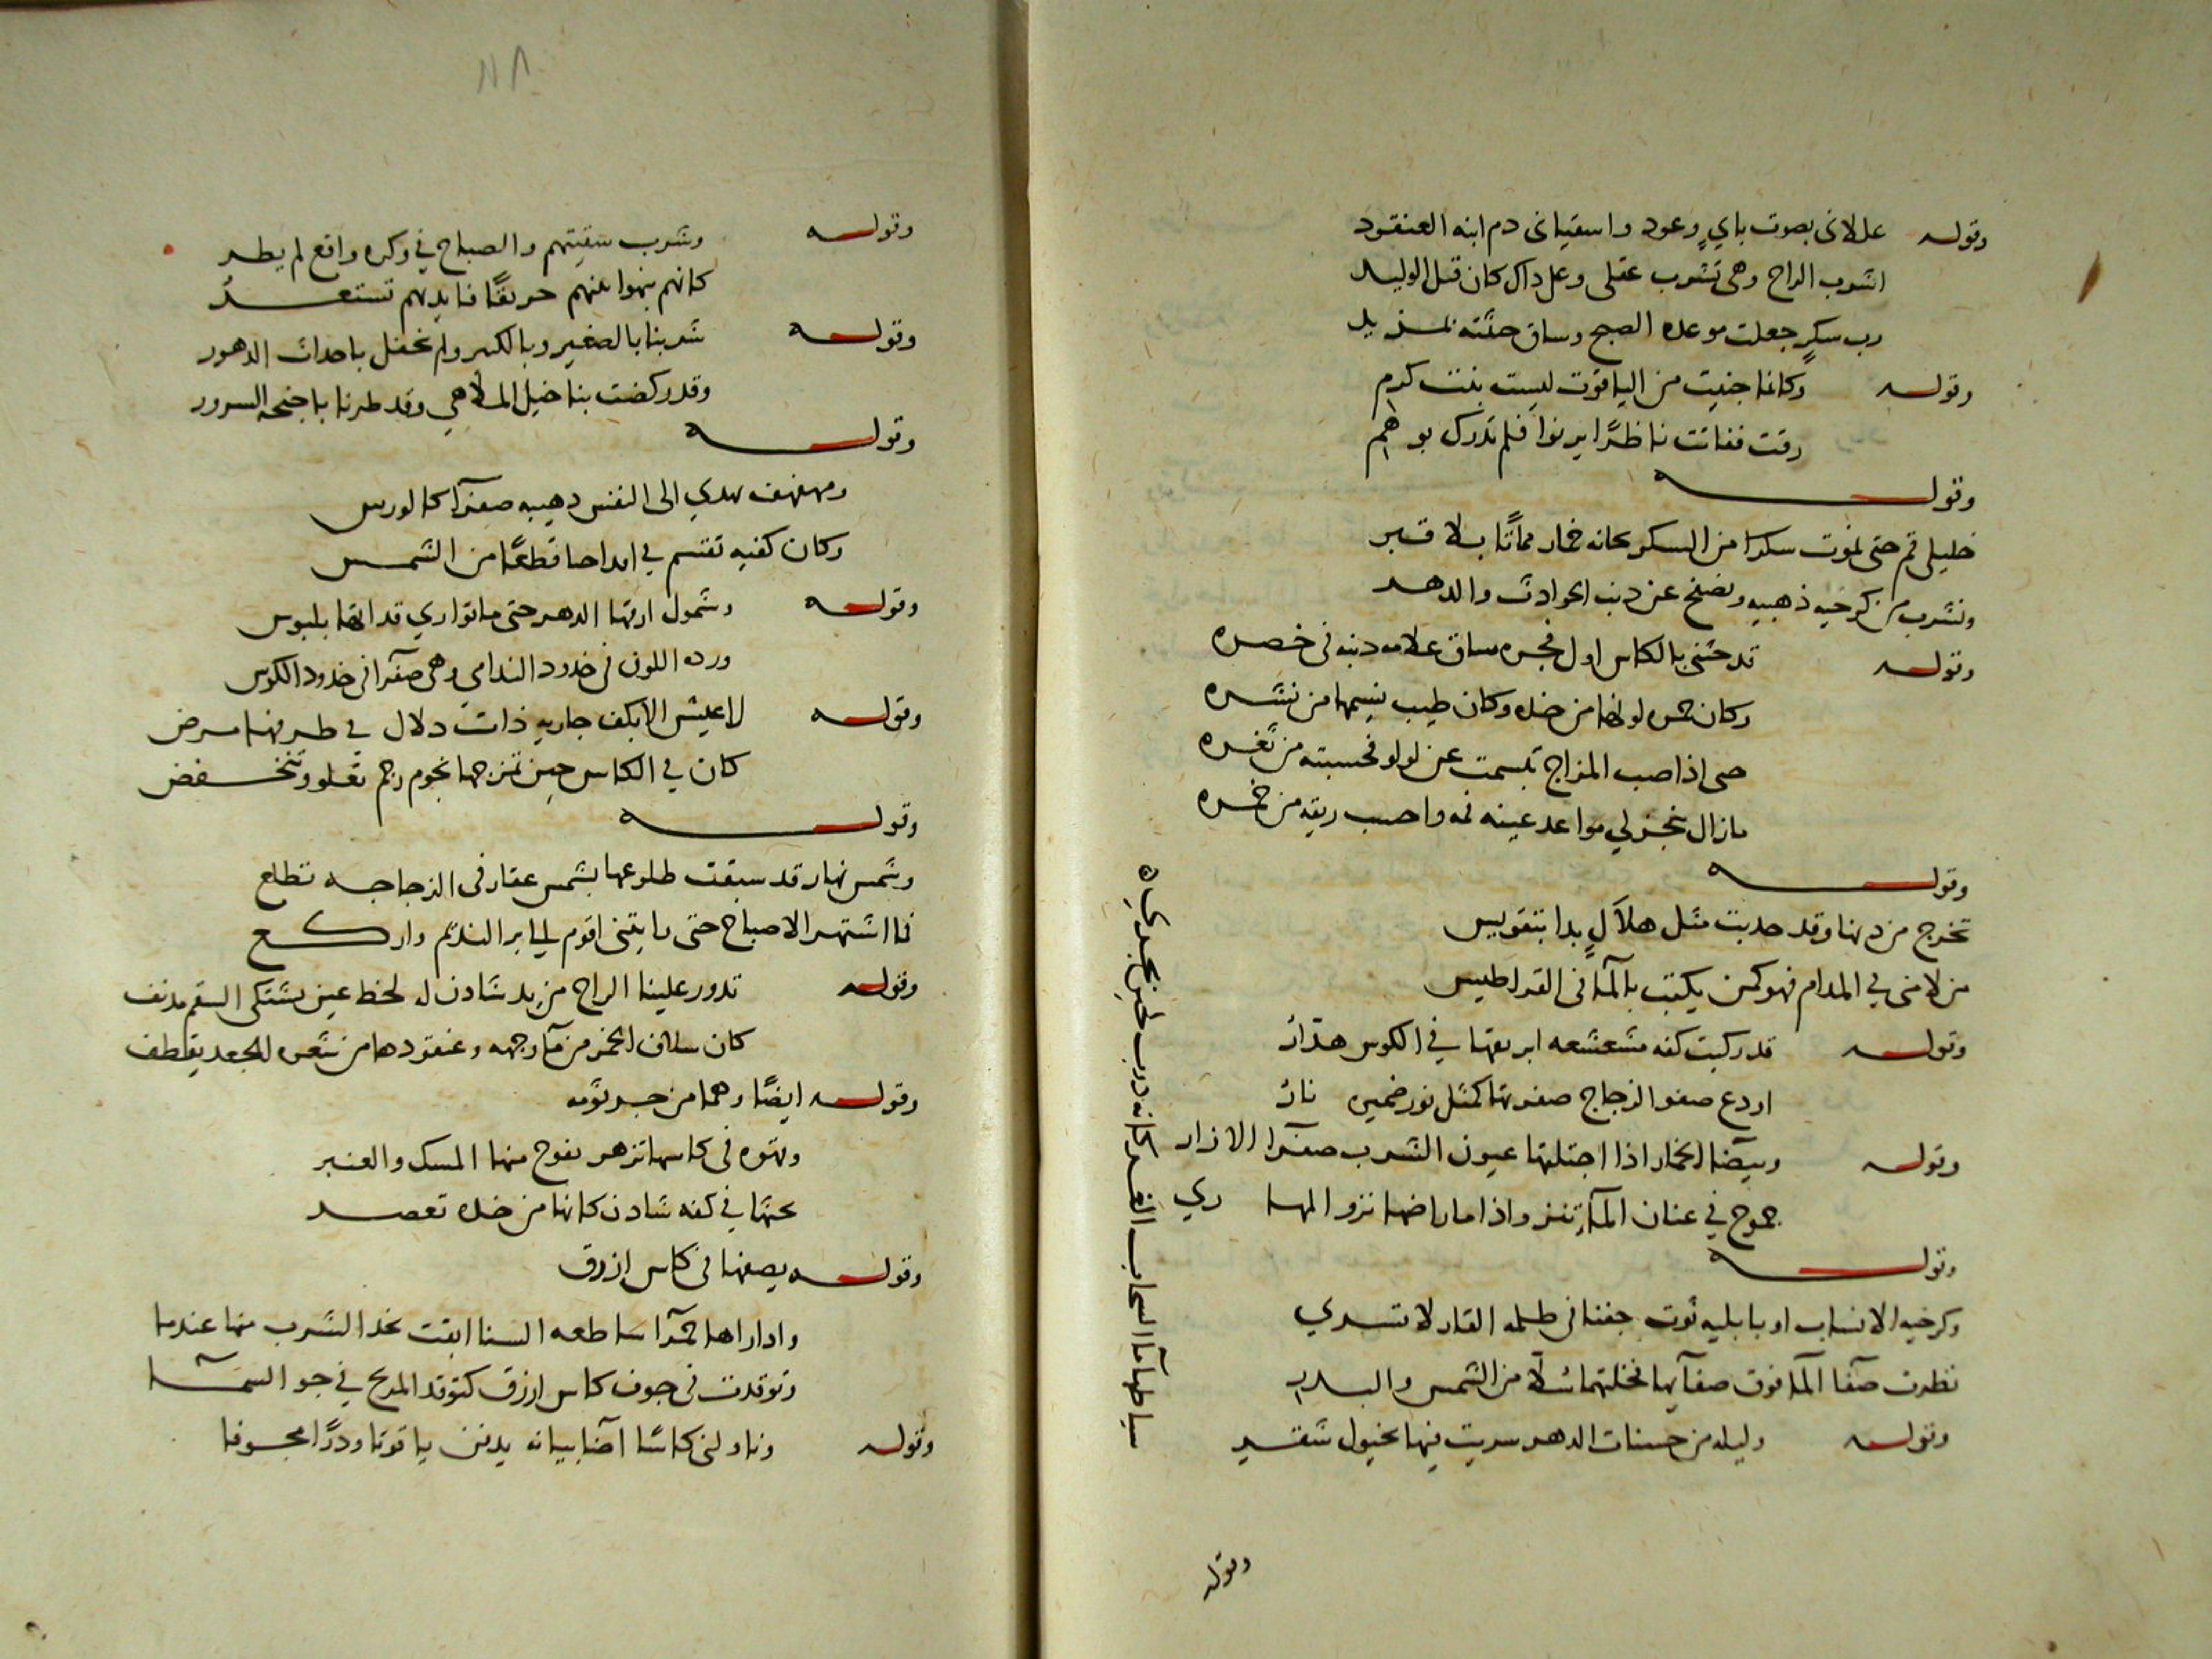 وقوله عللانى بصوت ناي وعود واسقيانى دم ابنه العنقود
اشرب الراح وهى تشرب عقلى وعلى ذاك كان قتل الوليد
رب سكرٍ جعلت موعده الصبح وساق حثثته
وقوله وكانما جنيت من الياقوت ليست بنت كرم
رقت ففاتت ناظرًا يرنوا فلم تدرك بوهم
وقوله
خليلى قم حتى نموت سكرا من السكر بحانه خمار مماتًا بلا قبر
ونشرب من كرخيه ذهبيه ونصفح عن ذنب الحوادث والدهر
وقوله قد حثنى بالكاس اول فجره ساق علامه دينه فى خصره
وكان حمره لونها من خده وكان طيب نسيمها من نشره
حتى اذا صب المزاج تبسمت عن لولو فحسبته من ثغره
مازال ينجز لي مواعد عينه فمه واحسب ريقه من خمره
وقوله
تخرج من دنها وقد حدبت مثل هلالٍ بدا بتقويس
من لامنى في المدام فهو كمن يكتب بالمآ فى القراطيس
وقوله قد ركبت كفه مشعشعه ابريقها في الكوس هدّار
اودع صفو الزجاج صفوتها كمثل نور ضميره نار
وقوله وبيضآ الخمار اذا اجتلتها عيون الشرب صفرآ الازار
جموح في عنان المآ تنزو اذا ما راضها نزو المهاري
وقوله
وكرخيه الانساب او بابليه ثوت حقبا فى ظلمه القار لا تسري
نظرت صفآ المآ فوق صفآيها فخلتهما سُلّا من الشمس والبدر
وقوله وليله من حسنات الدهر سريت فيها بخيول شقر
وقوله
وقوله وشرب سقيتهم والصباح في وكره واقع لم يطر
كانهم نهبوا بينهم حريقًا فايديهم تستعر
وقوله شربنا بالصغير وبالكبير ولم نحفل باحداث الدهور
وقد ركضت بنا خيل الملاهي وقد طرنا باجنحه السرور
وقوله
ومهفهف يهدي الى النفس ذهبيه صفرآ كالورس
وكان كفيه تقسم في اقداحنا قطعًا من الشمس
وقوله وشمول ارقها الدهر حتى ما تواري قذاتها بلبوس
ورده اللون فى خدود الندامي وهى صفرآ فى خدود الكوس
وقوله لا عيش الا بكف جاريه ذات دلال في طرفها مرض
كان في الكاس حين تمزجها نجوم رجم تعلو وتنخفض
وقوله
وشمس نهار قد سبقت طلوعها بشمس عقار فى الزجاجه تطلع
فما اشتهر الاصباح حتى رايتنى اقوم لجابر النديم واركع
وقوله تدور علينا الراح من يد شادن له لحظ عين يشتكى السقم مدنف
كان سلاف الخمر من مآ وجهه وعنقودها من شعره الجعد يقطف
وقوله ايضًا وهما من
وقهوه فى كاسها تزهر يفوح منها المسك والعنبر
يحثها في كفه شادن كانها من خده تعصر
وقوله يصفها فى كاس ازرق
وادارها حمرآ ساطعه السنا ابقت بخد الشرب منها عندما
وتوقدت فى جوف كاس ازرق كتوقد المريخ في جو السمآ
وقوله وناولنى كاسًا اضا بنانه يدفق ياقوتا ودرًّا مجوفا